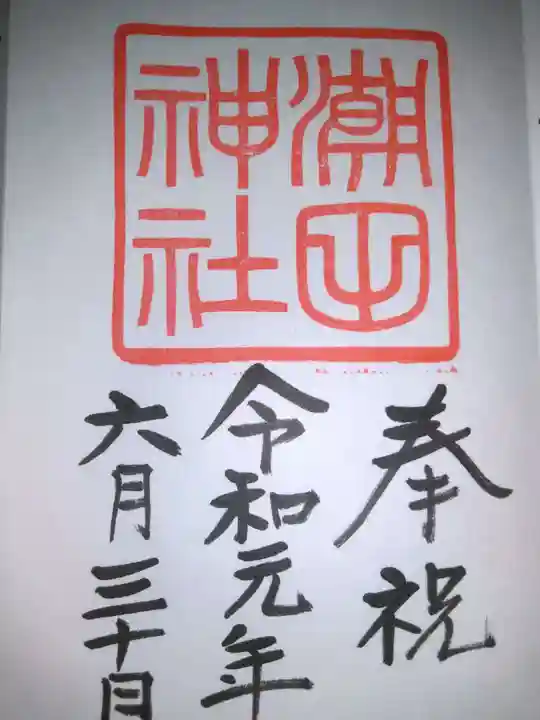 潮田
神社
奉祝
令和元年
六月三十日